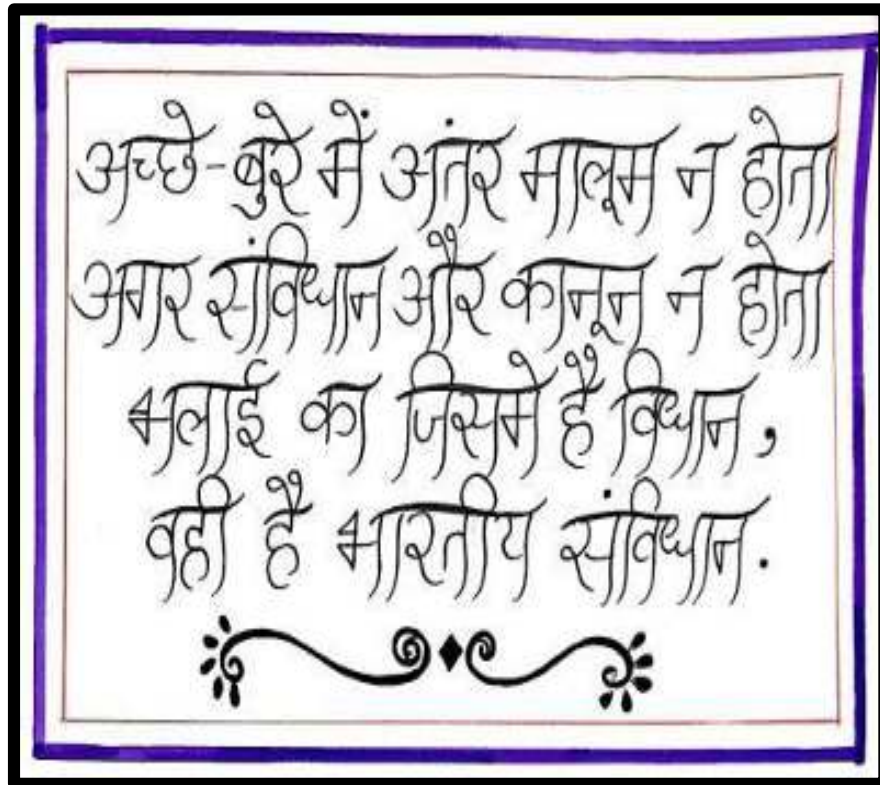 अच्छे-बुरे में अंतर मालूम न होता
अगर संविधान और कानून न होता
भलाई का जिसमे है विधान,
वही है भारतीय संविधान.